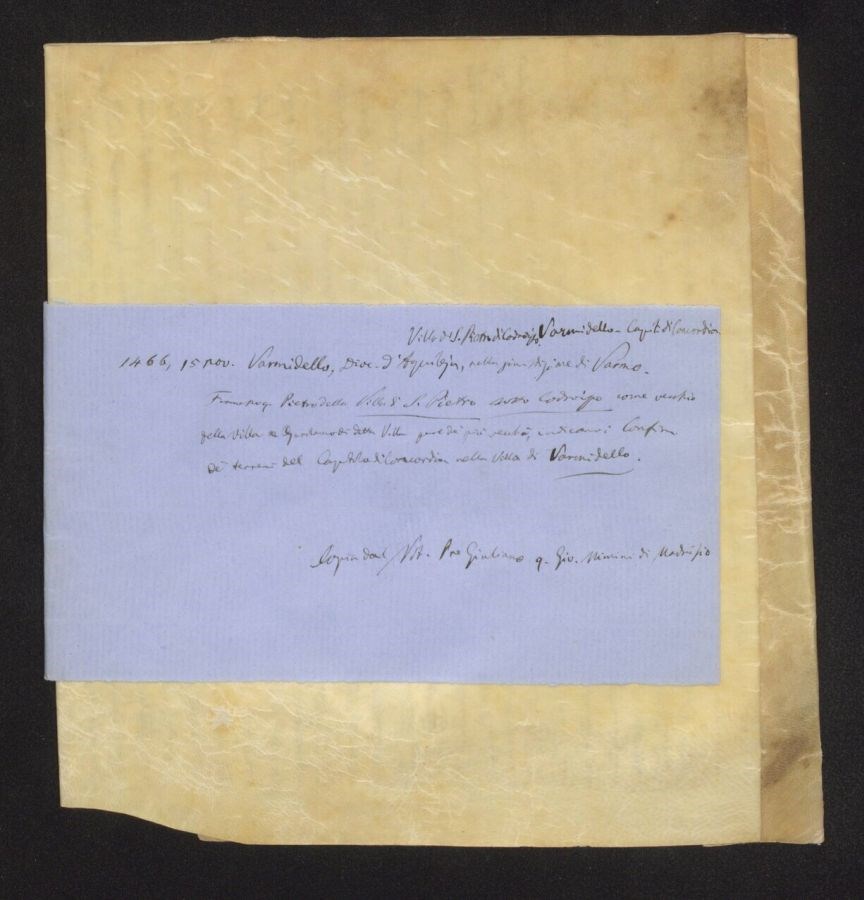 Villa di S. Pietro di Codroipo Varmidello - Capit. di Concordia
1466, 15 nov. Varmidello, Dioc. d'Aquileja, nella giurisdizione di Varmo.
Pietro della Villa di S. Pietro sotto Codroipo come vecchio
della Villa di detta Villa confini
dei terreni del Capitolo di Concordia nella Villa di Varmidello.
Copia dal Not. Pre Giuliano q. Gio. Mimini di Madrisio